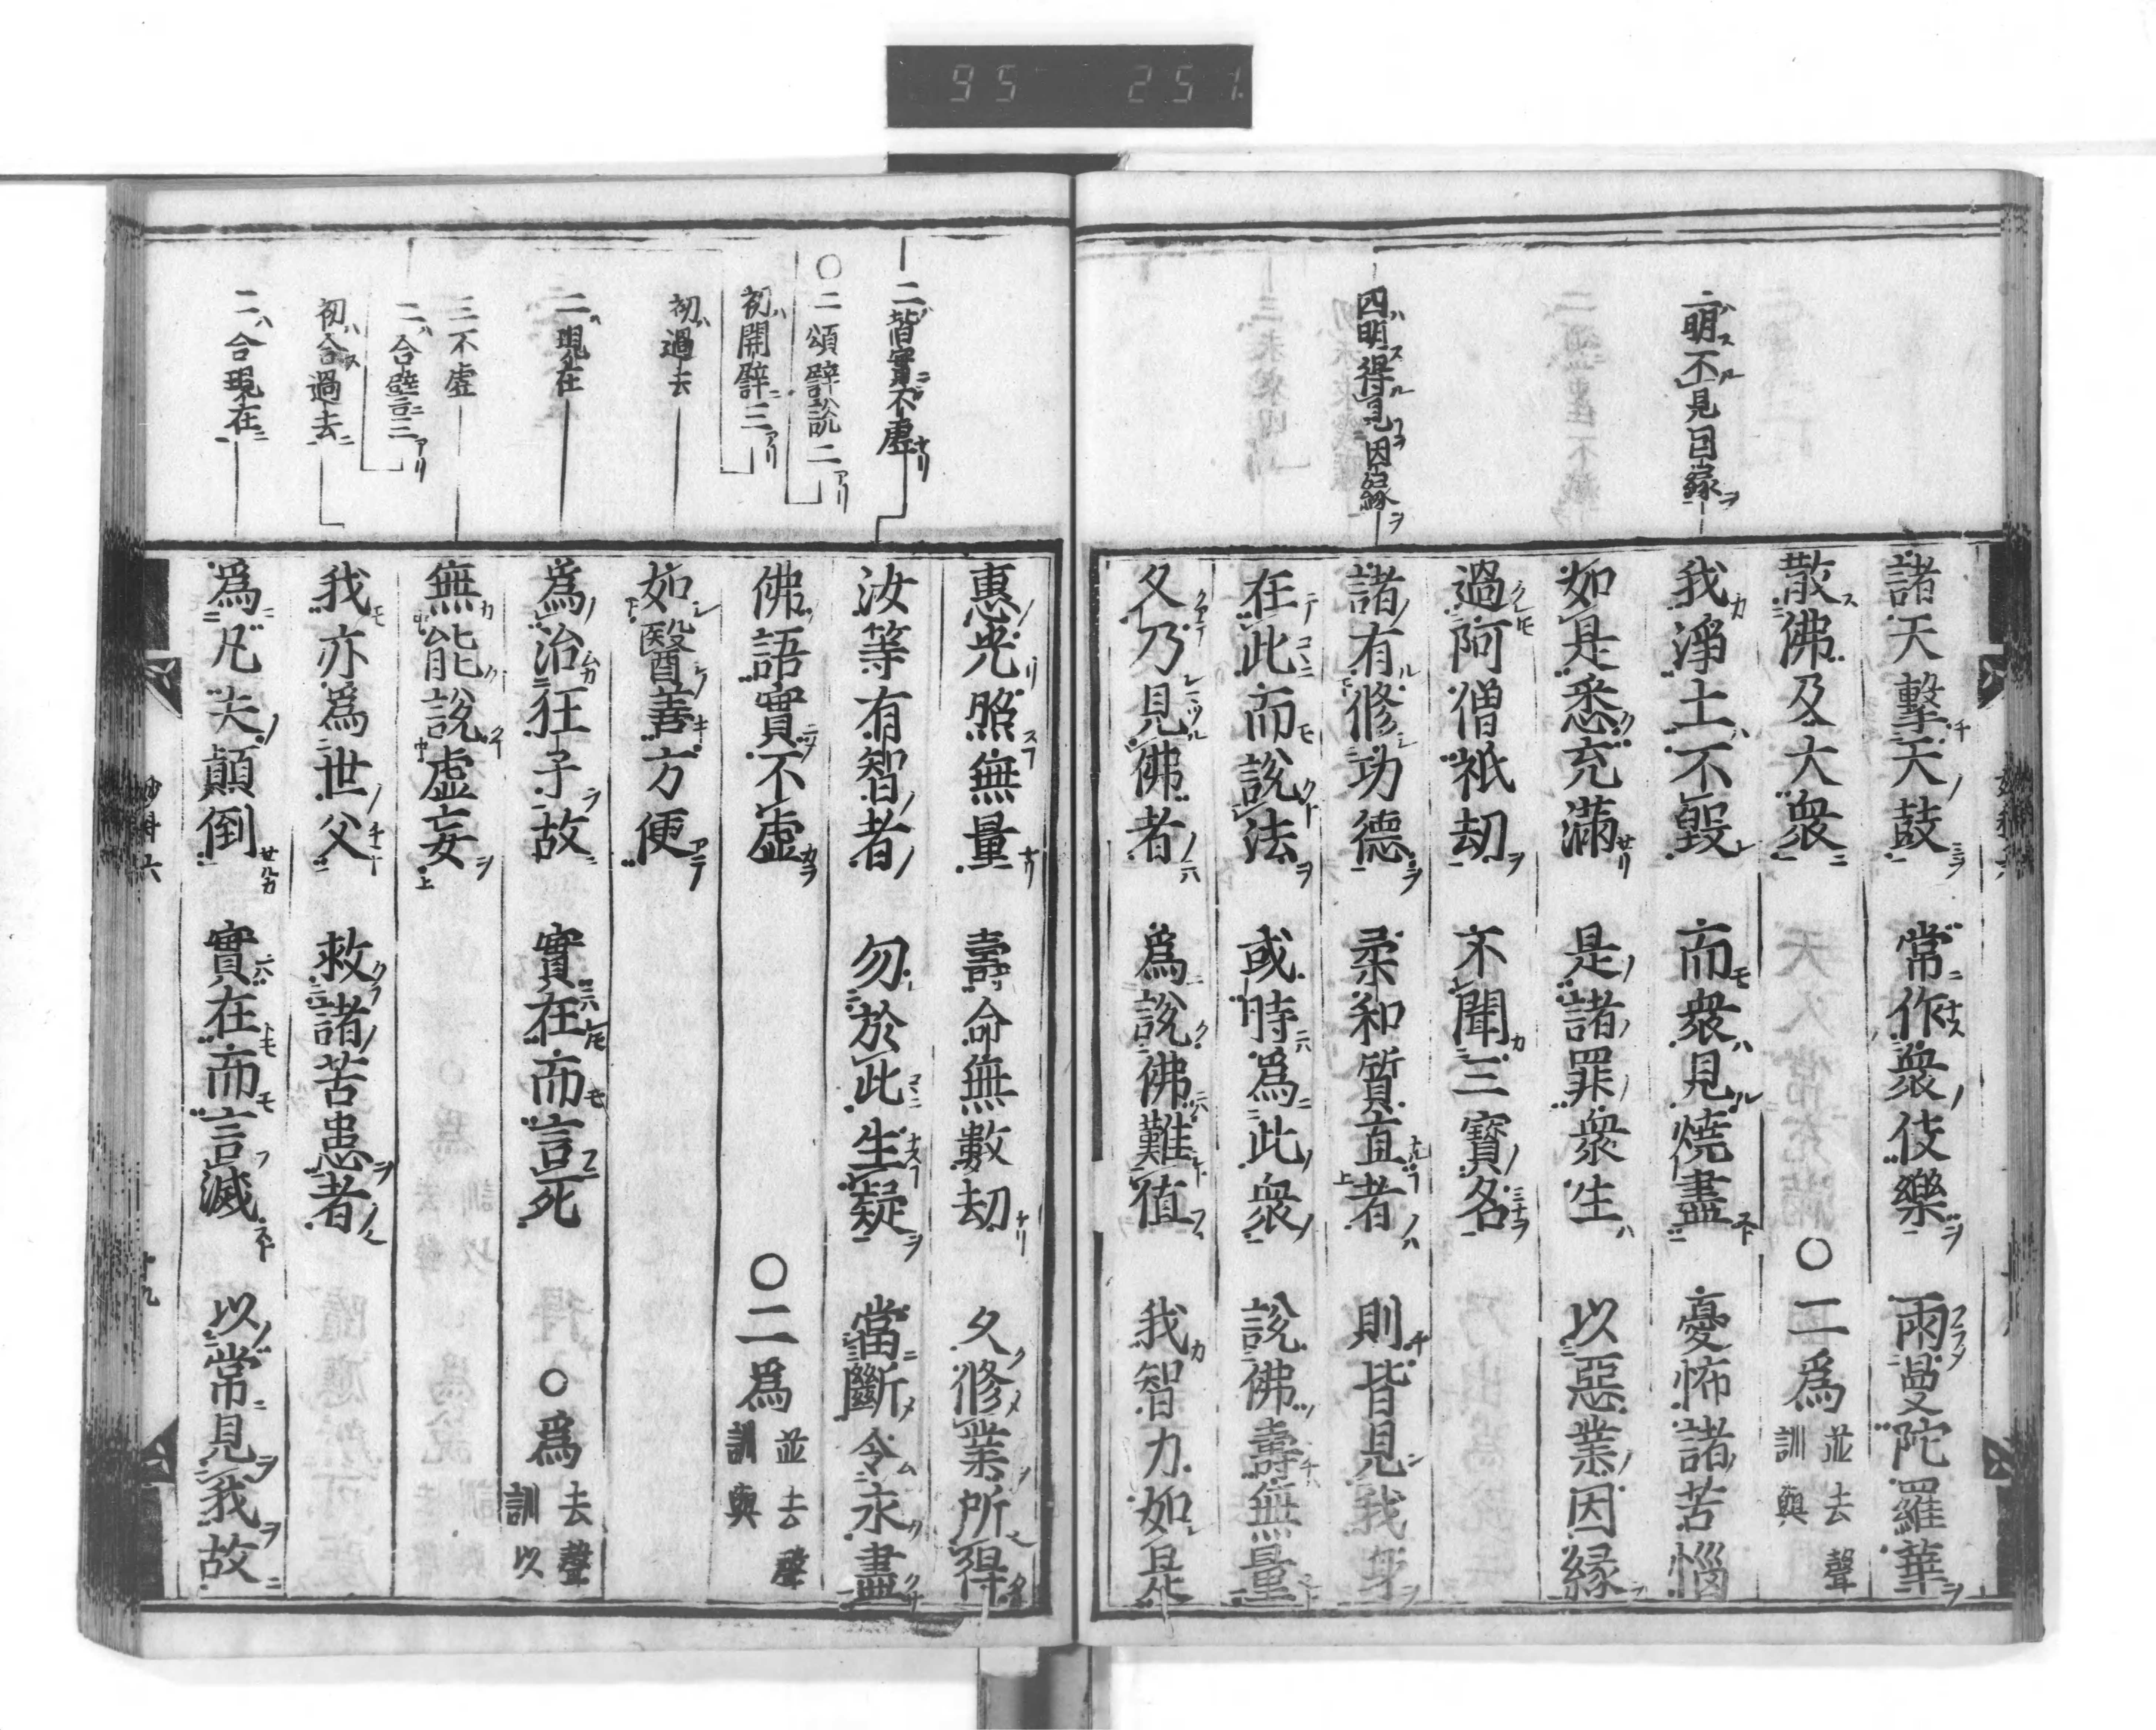 95 251
二明不見因緣
四明得見因緣
諸天擊天鼓 常作衆伎樂 雨曼陀羅華
散佛及大衆 〇二爲 並去聲訓與
我淨土不毀 而衆見燒盡 憂怖諸苦惱
如是悉充滿 是諸罪衆生 以惡業因緣
過阿僧祇劫 不聞三寶名
諸有修功德 柔和質直者 則皆見我身
在此而說法 或時爲此衆 說佛壽無量
久乃見佛者 爲說佛難値 我智力如是
二皆實不虛
〇二頌譬說二
初開譬三
初過去
二現在
三不虛
二合譬三
初合過去
二合現在
惠光照無量 壽命無數劫 久修業所得
汝等有智者 勿於此生疑 當斷令永盡
佛語實不虛 〇二爲 並去聲訓與
如醫善方便
爲治狂子故 實在而言死 〇爲 去聲訓以
無能說虛妄
我亦爲世父 救諸苦患者
爲凡夫顛倒 實在而言滅 以常見我故